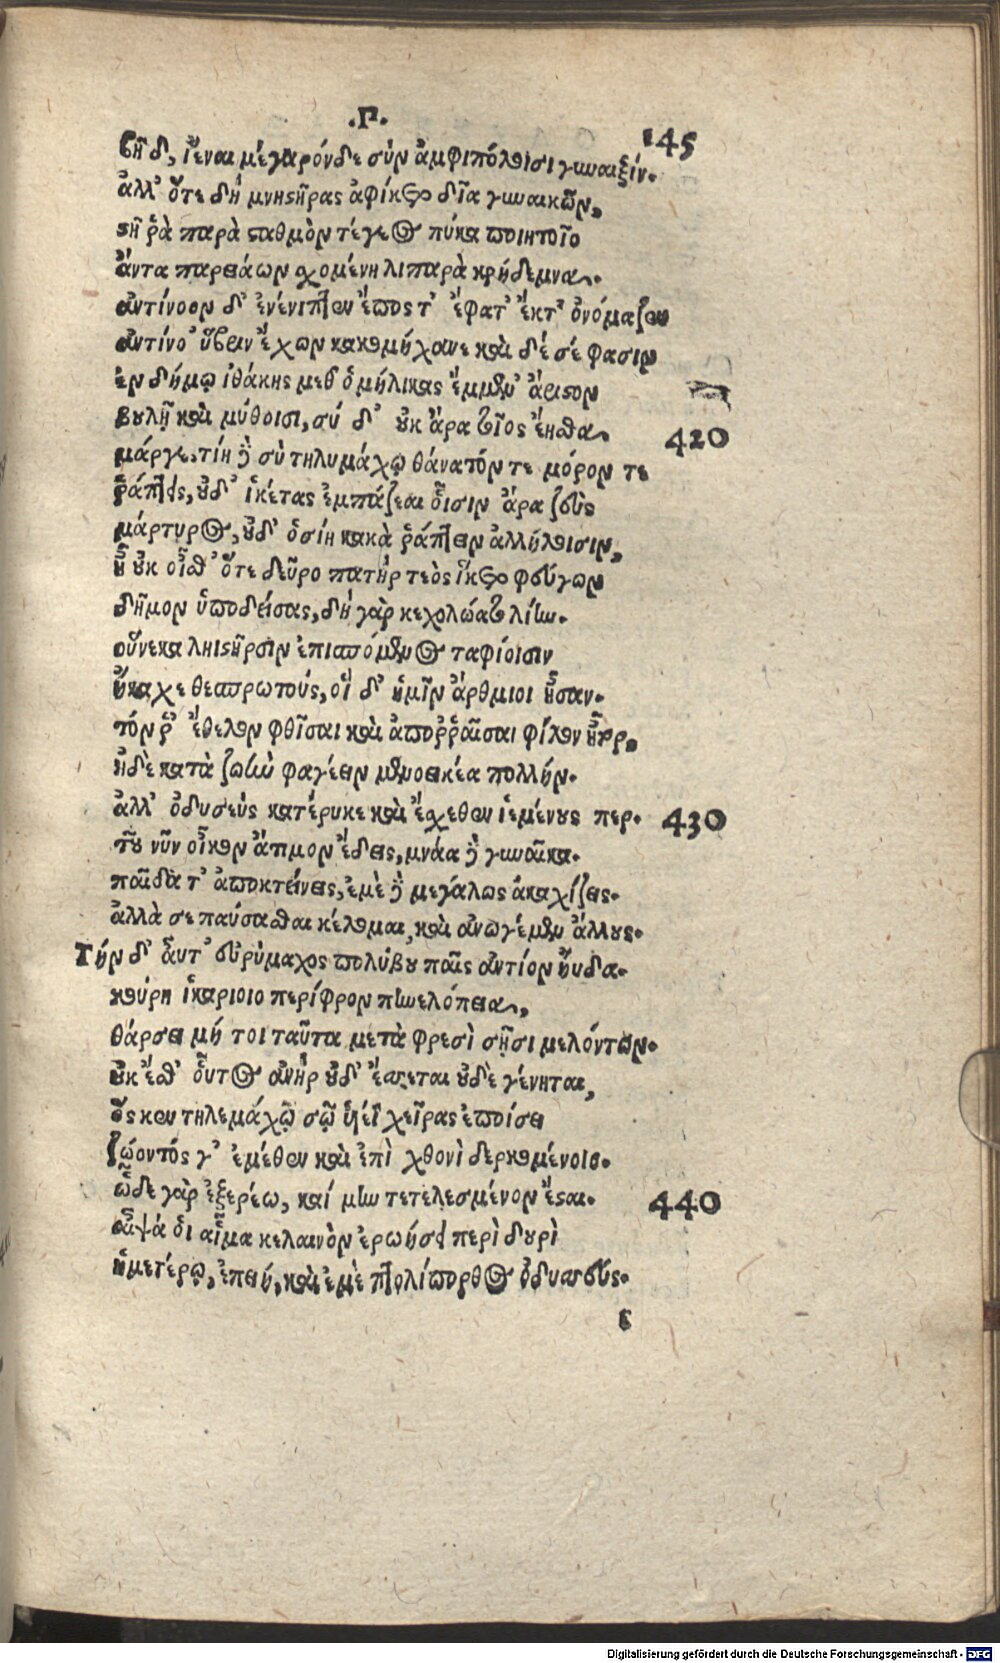 .Π.
145
βῆ δ, ἴεναι μέγαρόνδε σὺν ἀμφιπόλοισι γυναιξίν.
ἀλλ' ὅτε δὴ μνηστῆρας ἀφίκετο δῖα γυναικῶν,
στῆ ῥὰ παρὰ σαθμὸν τέγεος πύκα ποιητοῖο
ἄντα παρειάων σχομένη λιπαρὰ κρήδεμνα.
ἀντίνοον δ' ἐνένιπεν ἔπος τ' ἔφατ' ἔκτ' ὀνόμαζεν
ἀντίνο' ὕβριν ἔχων κακομήχανε καὶ δέ σέ φασιν
ἐν δήμῳ ἰθάκης μεθ ὁμήλικας ἔμμεν' ἄριστον
βουλῇ καὶ μύθοισι, σύ δ' οὐκ ἄρα τοῖος ἔησθα.
420
μάργε, τίη δὲ σὺ τηλυμάχῳ θάνατόν τε μόρον τε
ῥάπτεις, οὐδ' ἱκέτας ἐμπάζεαι οἷσιν ἄρα ζεὺς
μάρτυρος, οὐδ' ὁσίη κακὰ ῥάπτειν ἀλλήλοισιν,
ἦ οὐκ οἶσθ' ὅτε δεῦρο πατὴρ τεὸς ἵκετο φεύγων
δῆμον ὑποδείσας, δὴ γὰρ κεχολώατο λίην.
οὕνεκα ληιστῆρσιν ἐπισπόμενος ταφίοισιν
ἤκαχε θεσπρωτούς, οἵ δ' ἡμῖν ἄρθμιοι ἦσαν.
τόν ῥ' ἔθελον φθῖσαι καὶ ἀποῤῥαῖσαι φίλον ἦτορ,
ἠδὲ κατὰ ζωὴν φαγέειν μενοεικέα πολλήν.
ἀλλ' ὀδυσεὺς κατέρυκε καὶ ἔσχεθεν ἱεμένους περ.
430
τοῦ νῦν οἶκον ἄτιμον ἔδεις, μνάα δὲ γυναῖκα.
παῖδά τ' ἀποκτείνεις, ἐμὲ δὲ μεγάλως ἀκαχίζεις.
ἀλλὰ σε παύσασθαι κέλομαι, καὶ ἀνωγέμεν ἄλλους.
Τήν δ' ἆυτ' εὐρύμαχος πολύβου παῖς ἀντίον ἤυδα.
κούρη ἰκαριοιο περίφρον πηνελόπεια,
θάρσει μή τοι ταῦτα μετὰ φρεσὶ σῇσι μελόντων.
οὐκ ἔσθ' οὗτος ἀνὴρ οὐδ' ἔσσεται οὐδὲ γένηται,
ὅς κεν τηλεμάχῳ σῷ ὑϊέϊ χεῖρας ἐποίσει
ζώοντός γ' ἐμέθεν καὶ ἐπὶ χθονὶ δερκομένοιο.
ὧδε γὰρ ἐξερέω, καί μην τετελεσμένον ἔσται.
440
αἶψά δι αἷμα κελαινὸν ἐρωήσει περὶ δουρὶ
ἡμετέρῳ, ἐπειή, καὶ ἐμὲ πτολίπορθος ὀδυσσεύς.
Digitalisierung gefördert durch die Deutsche Forschungsgemeinschaft - DFG